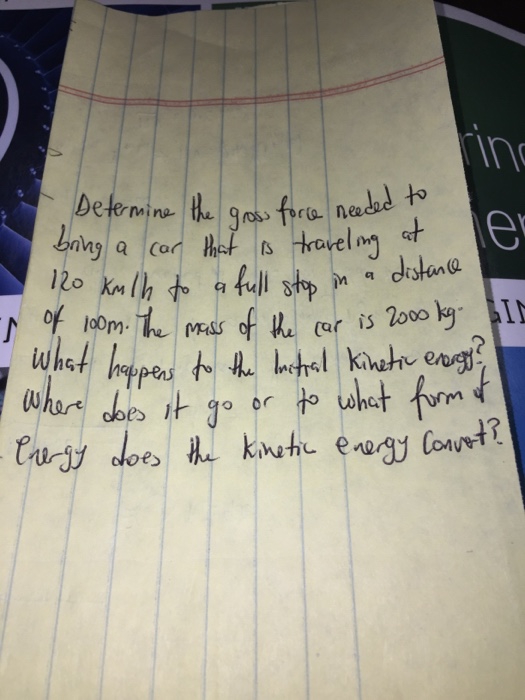 Determine the gross force needed to
bring a car that is traveling at
120 km/h to a full stop in a distance
of 100m. The mass of the car is 2000 kg.
What happens to the Initial kinetic energy?
Where does it go or to what form of
Energy does the kinetic energy Convert?